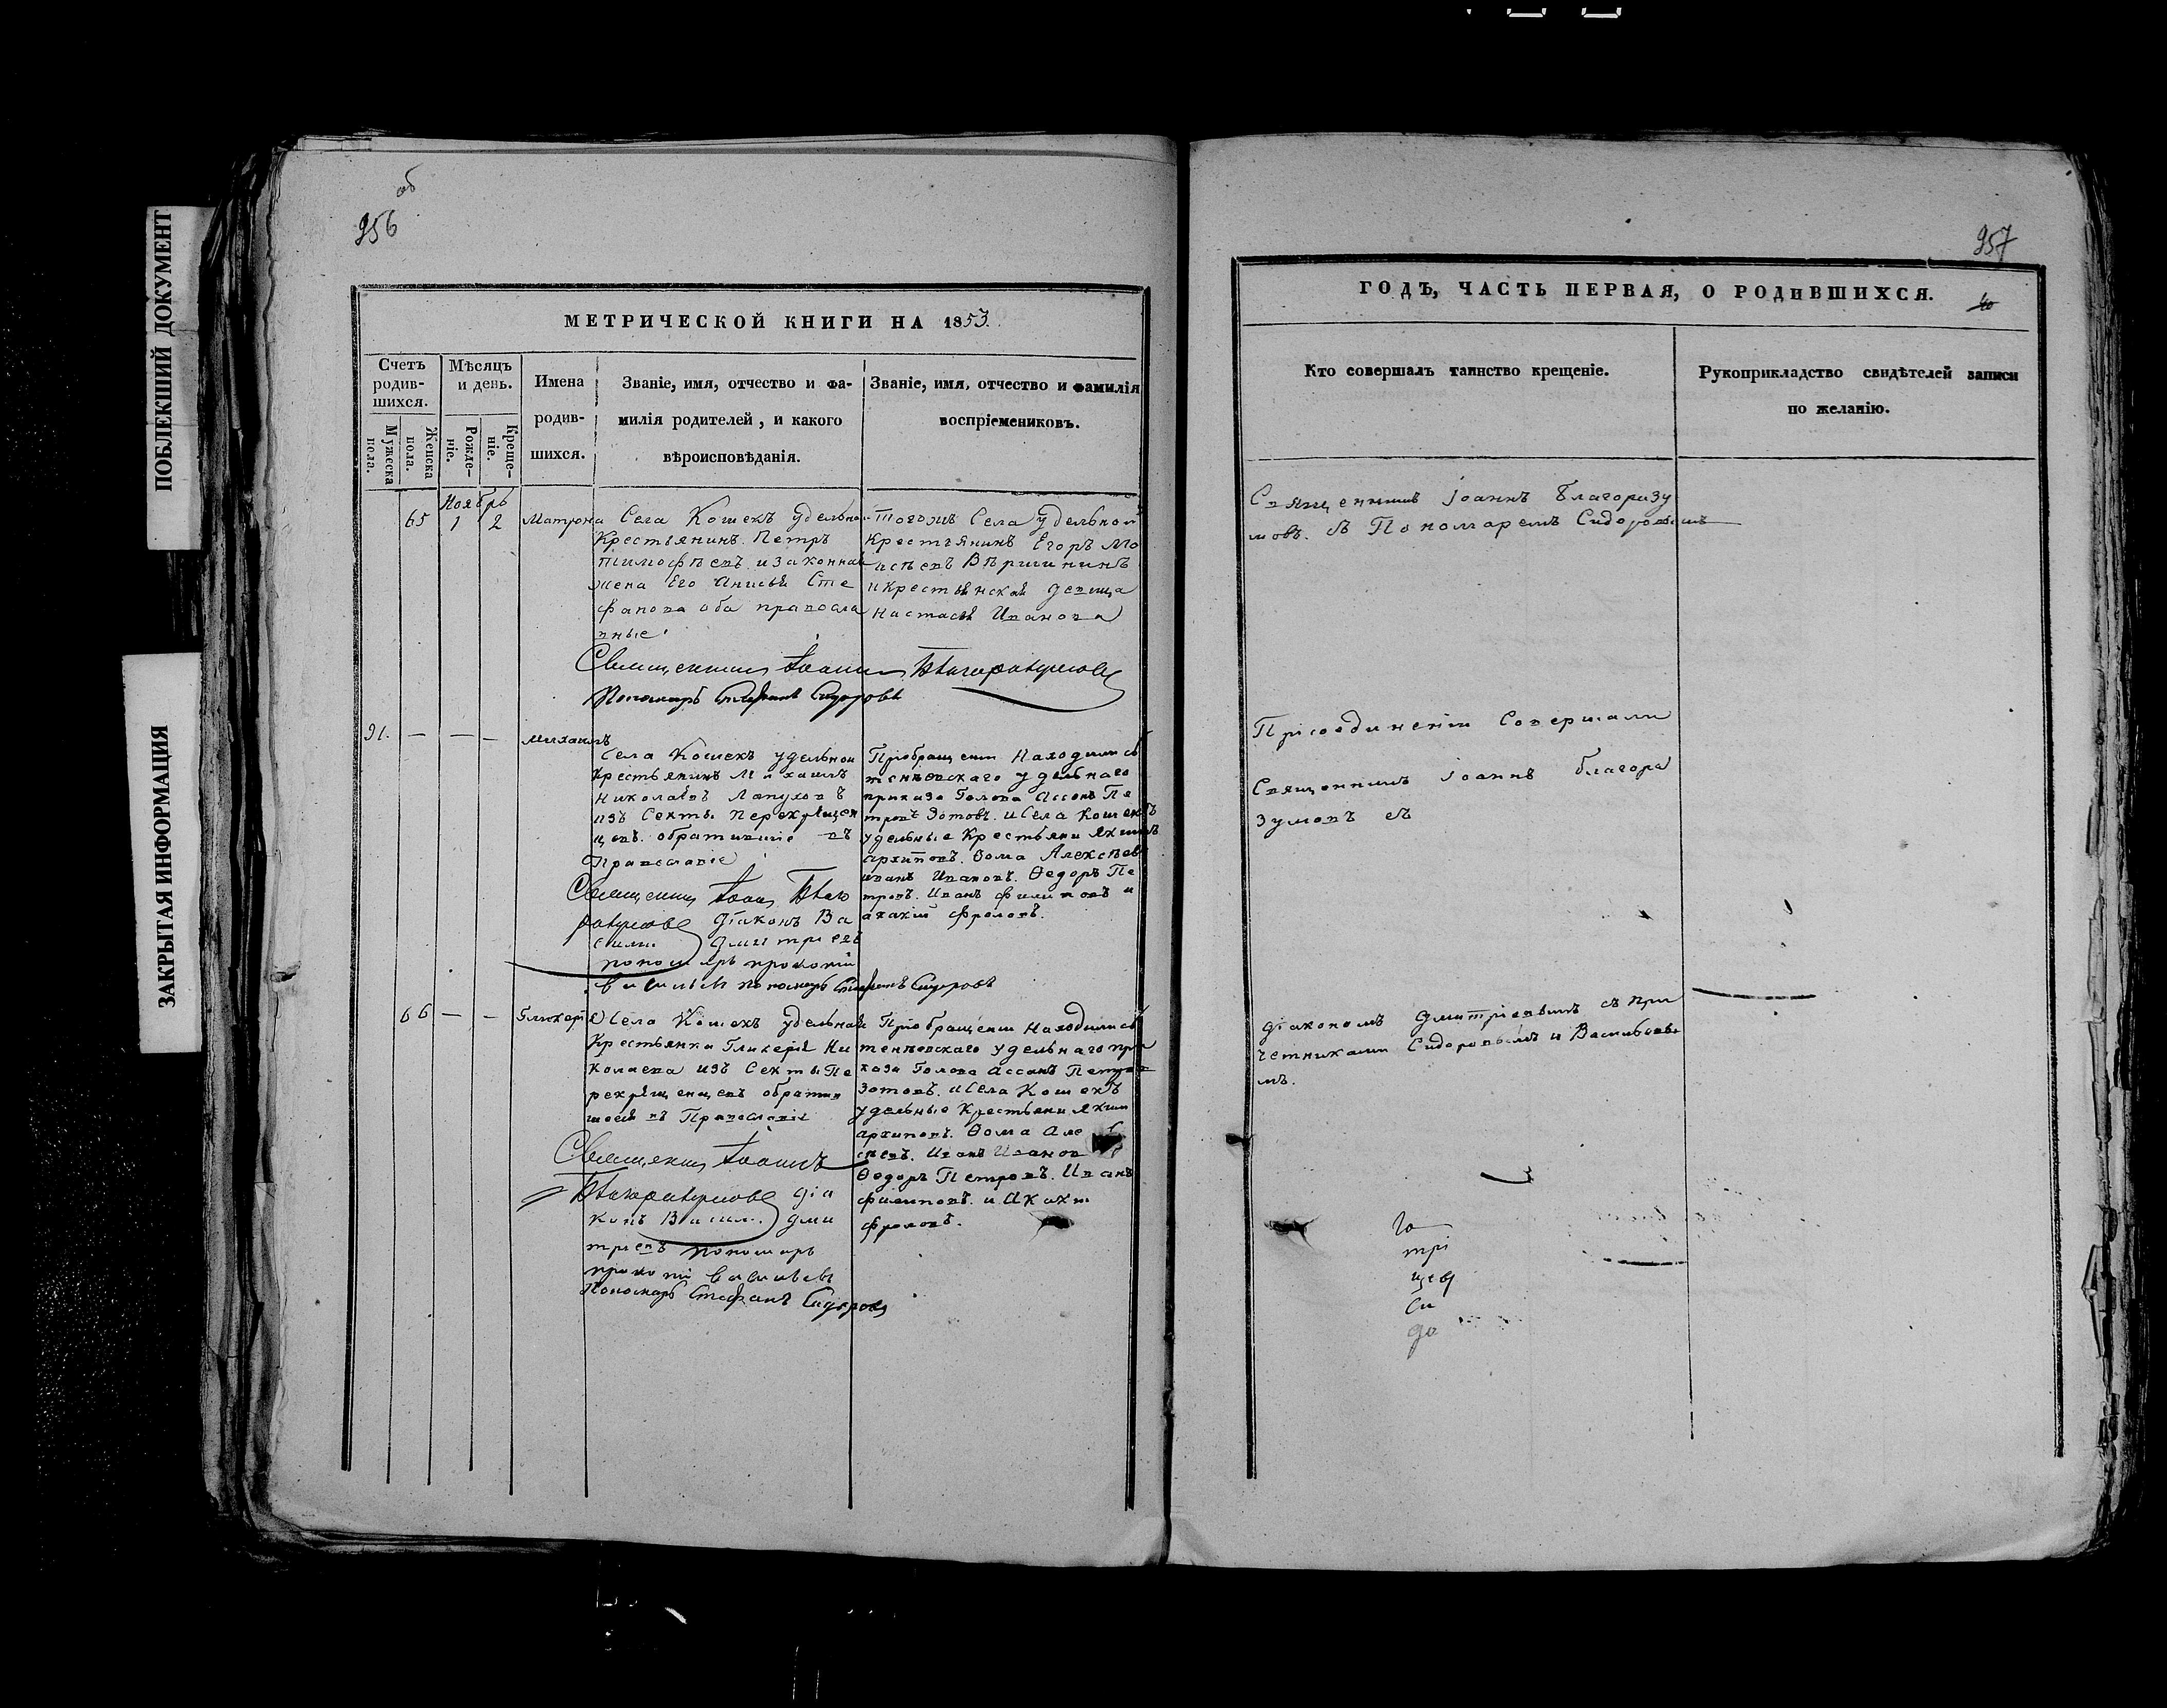 ПОБЛЕКШИЙ ДОКУМЕНТ
ЗАКРЫТАЯ ИНФОРМАЦИЯ
об
956
МЕТРИЧЕСКОЙ КНИГИ НА 1853.
Счетъ родившихся.
Мужеска пола.
Женска пола.
Мѣсяцъ и день.
Рожденіе.
Крещеніе.
Имена родившихся.
Званіе, имя, отчество и фамилія родителей, и какого вѣроисповѣданія.
Званіе, имя, отчество и фамилія воспріемниковъ.
Ноябрь
65 1 2 Матрона
Села Кошекъ удельной
Крестьянинъ Петръ
Тимофѣевъ и законная
жена Его Анисья Сте
фанова оба правосла
вные.
Тогожъ Села удельной
Крестьянинъ Егоръ Мо
исѣевъ Вѣригинъ
и Крестьянская девица
Настасья Иванова
Священникъ Іоаннъ Благоразумовъ
Пономарь Стефанъ Сидоровъ
91. — — — Михаилъ
Села Кошекъ удельной
Крестьянинъ Михаилъ
Николаевъ Лапуховъ
изъ Секты Перекрещен
цевъ обратившіе въ
Православіе
Священникъ Іоаннъ Благо
разумовъ Діаконъ Ва
силій Дмитріевъ
пономарь прокопій
Васильевъ пономарь Стефанъ Сидоровъ
Пріобращеніи Находились
тенѣевскаго удельнаго
приказа Голова Ассонъ Пе
тровъ Зотовъ. и Села Кошекъ
удельные Крестьяни Якимъ
архиповъ. Ѳома Алексѣевъ
иванъ Ивановъ. Ѳедоръ Пе
тровъ. Иванъ филиповъ и
акакій фроловъ.
66 — — Гликерія
Села Кошекъ удельная
Крестьянка Гликерія Ни
колаева изъ Секты Пе
рекрещенцевъ обратив
шаяся въ Православіе
Священникъ Іоаннъ
Благоразумовъ діа
конъ Васил. дми
тріевъ пономарь
прокопій Васильевъ
Пономарь Стефанъ Сидоровъ
Пріобращеніи Находились
тенѣевскаго удельнаго при
каза Голова Ассонъ Петровъ
Зотовъ. и Села Кошекъ
удельные Крестьяни Яким
архиповъ. Ѳома Але
сѣевъ. Иванъ Иванов
Ѳедоръ Петровъ. Иванъ
филиповъ. и Акакій
фроловъ.
957
ГОДЪ, ЧАСТЬ ПЕРВАЯ, О РОДИВШИХСЯ.
40
Кто совершалъ таинство крещеніе.
Рукоприкладство свидѣтелей записи по желанію.
Священникъ Іоаннъ Благоразу
мовъ. съ Пономаремъ Сидоровымъ
Присоединеніи Совершали
Священникъ Іоаннъ благора
зумовъ съ
діакономъ Дмитріевымъ съ при
четниками Сидоровымъ и Васильевы
мъ.
трі
щев
Си
до